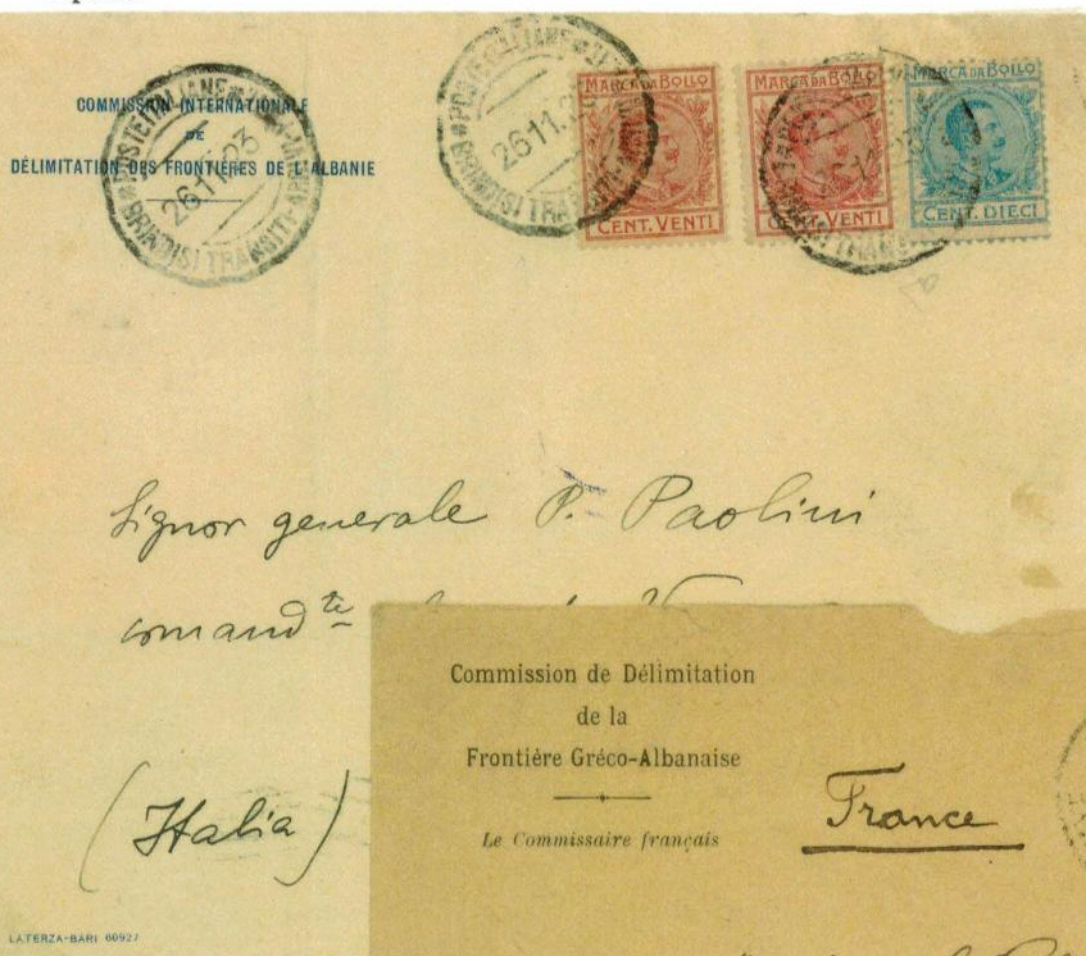 COMMISSION INTERNATIONALE
DE
DÉLIMITATION DES FRONTIÈRES DE L'ALBANIE
POSTE ITALIANE
26.11.23
BRINDISI TRANSITI
POSTE ITALIANE
26.11.
BRINDISI TRANSITI
MARCA DA BOLLO
CENT. VENTI
MARCA DA BOLLO
CENT. VENTI
MARCA DA BOLLO
CENT. DIECI
Signor generale P. Paolini
comand te
(Italia)
LATERZA-BARI 60927
Commission de Délimitation
de la
Frontière Gréco-Albanaise
Le Commissaire français
France